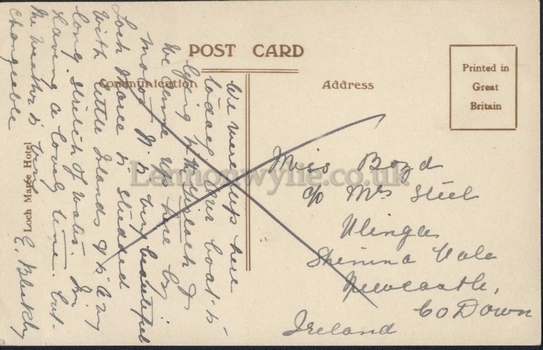 POST CARD
Communication
Address
Printed in
Great
Britain
Loch Maree Hotel
Lennonwylie.co.uk
We were up here
today. The boat is
lying
We came up here by
motor. It is very beautiful
Loch Maree is studded
with little Islands & is a very
long stretch of water. Am
having a lovely time. but
the weather is very
changeable
Miss Boyd
c/o Mrs Steel
Shimna Vale
Newcastle,
Co Down
Ireland